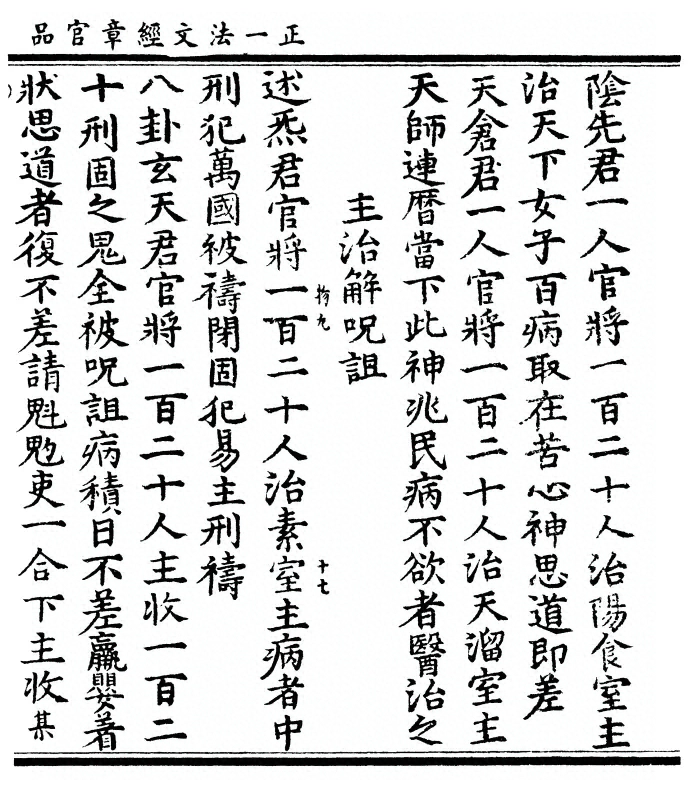 正一法文經章官品
陰先君一人官將一百二十人治陽食室主
治天下女子百病取在苦心神思道即差
天倉君一人官將一百二十人治天溜室主
天師連曆當下此神兆民病不欲者醫治之
主治解呪詛
述炁君官將一百二十人治素室主病者中
拾九
十七
刑犯萬國被禱閉固犯易主刑禱
八卦玄天君官將一百二十人主收一百二
十刑固之鬼全被呪詛病積日不差羸嬰著
狀思道者復不差請魁魁吏一合下主收某